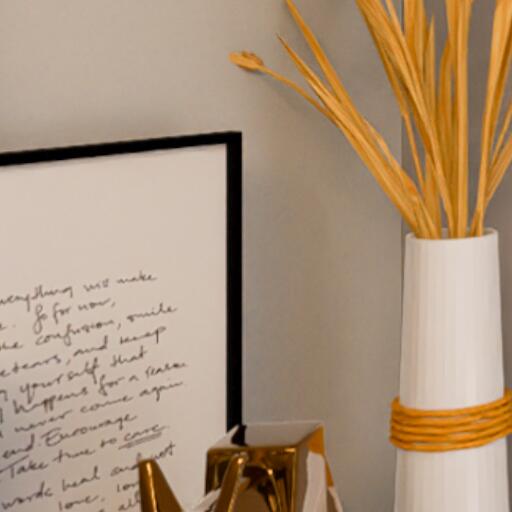 everything will make
. So for now,
the confusion, smile
tears, and keep
yourself that
happens for a reason
never come again
and Encourage
Take time to care
words heal and not
love,